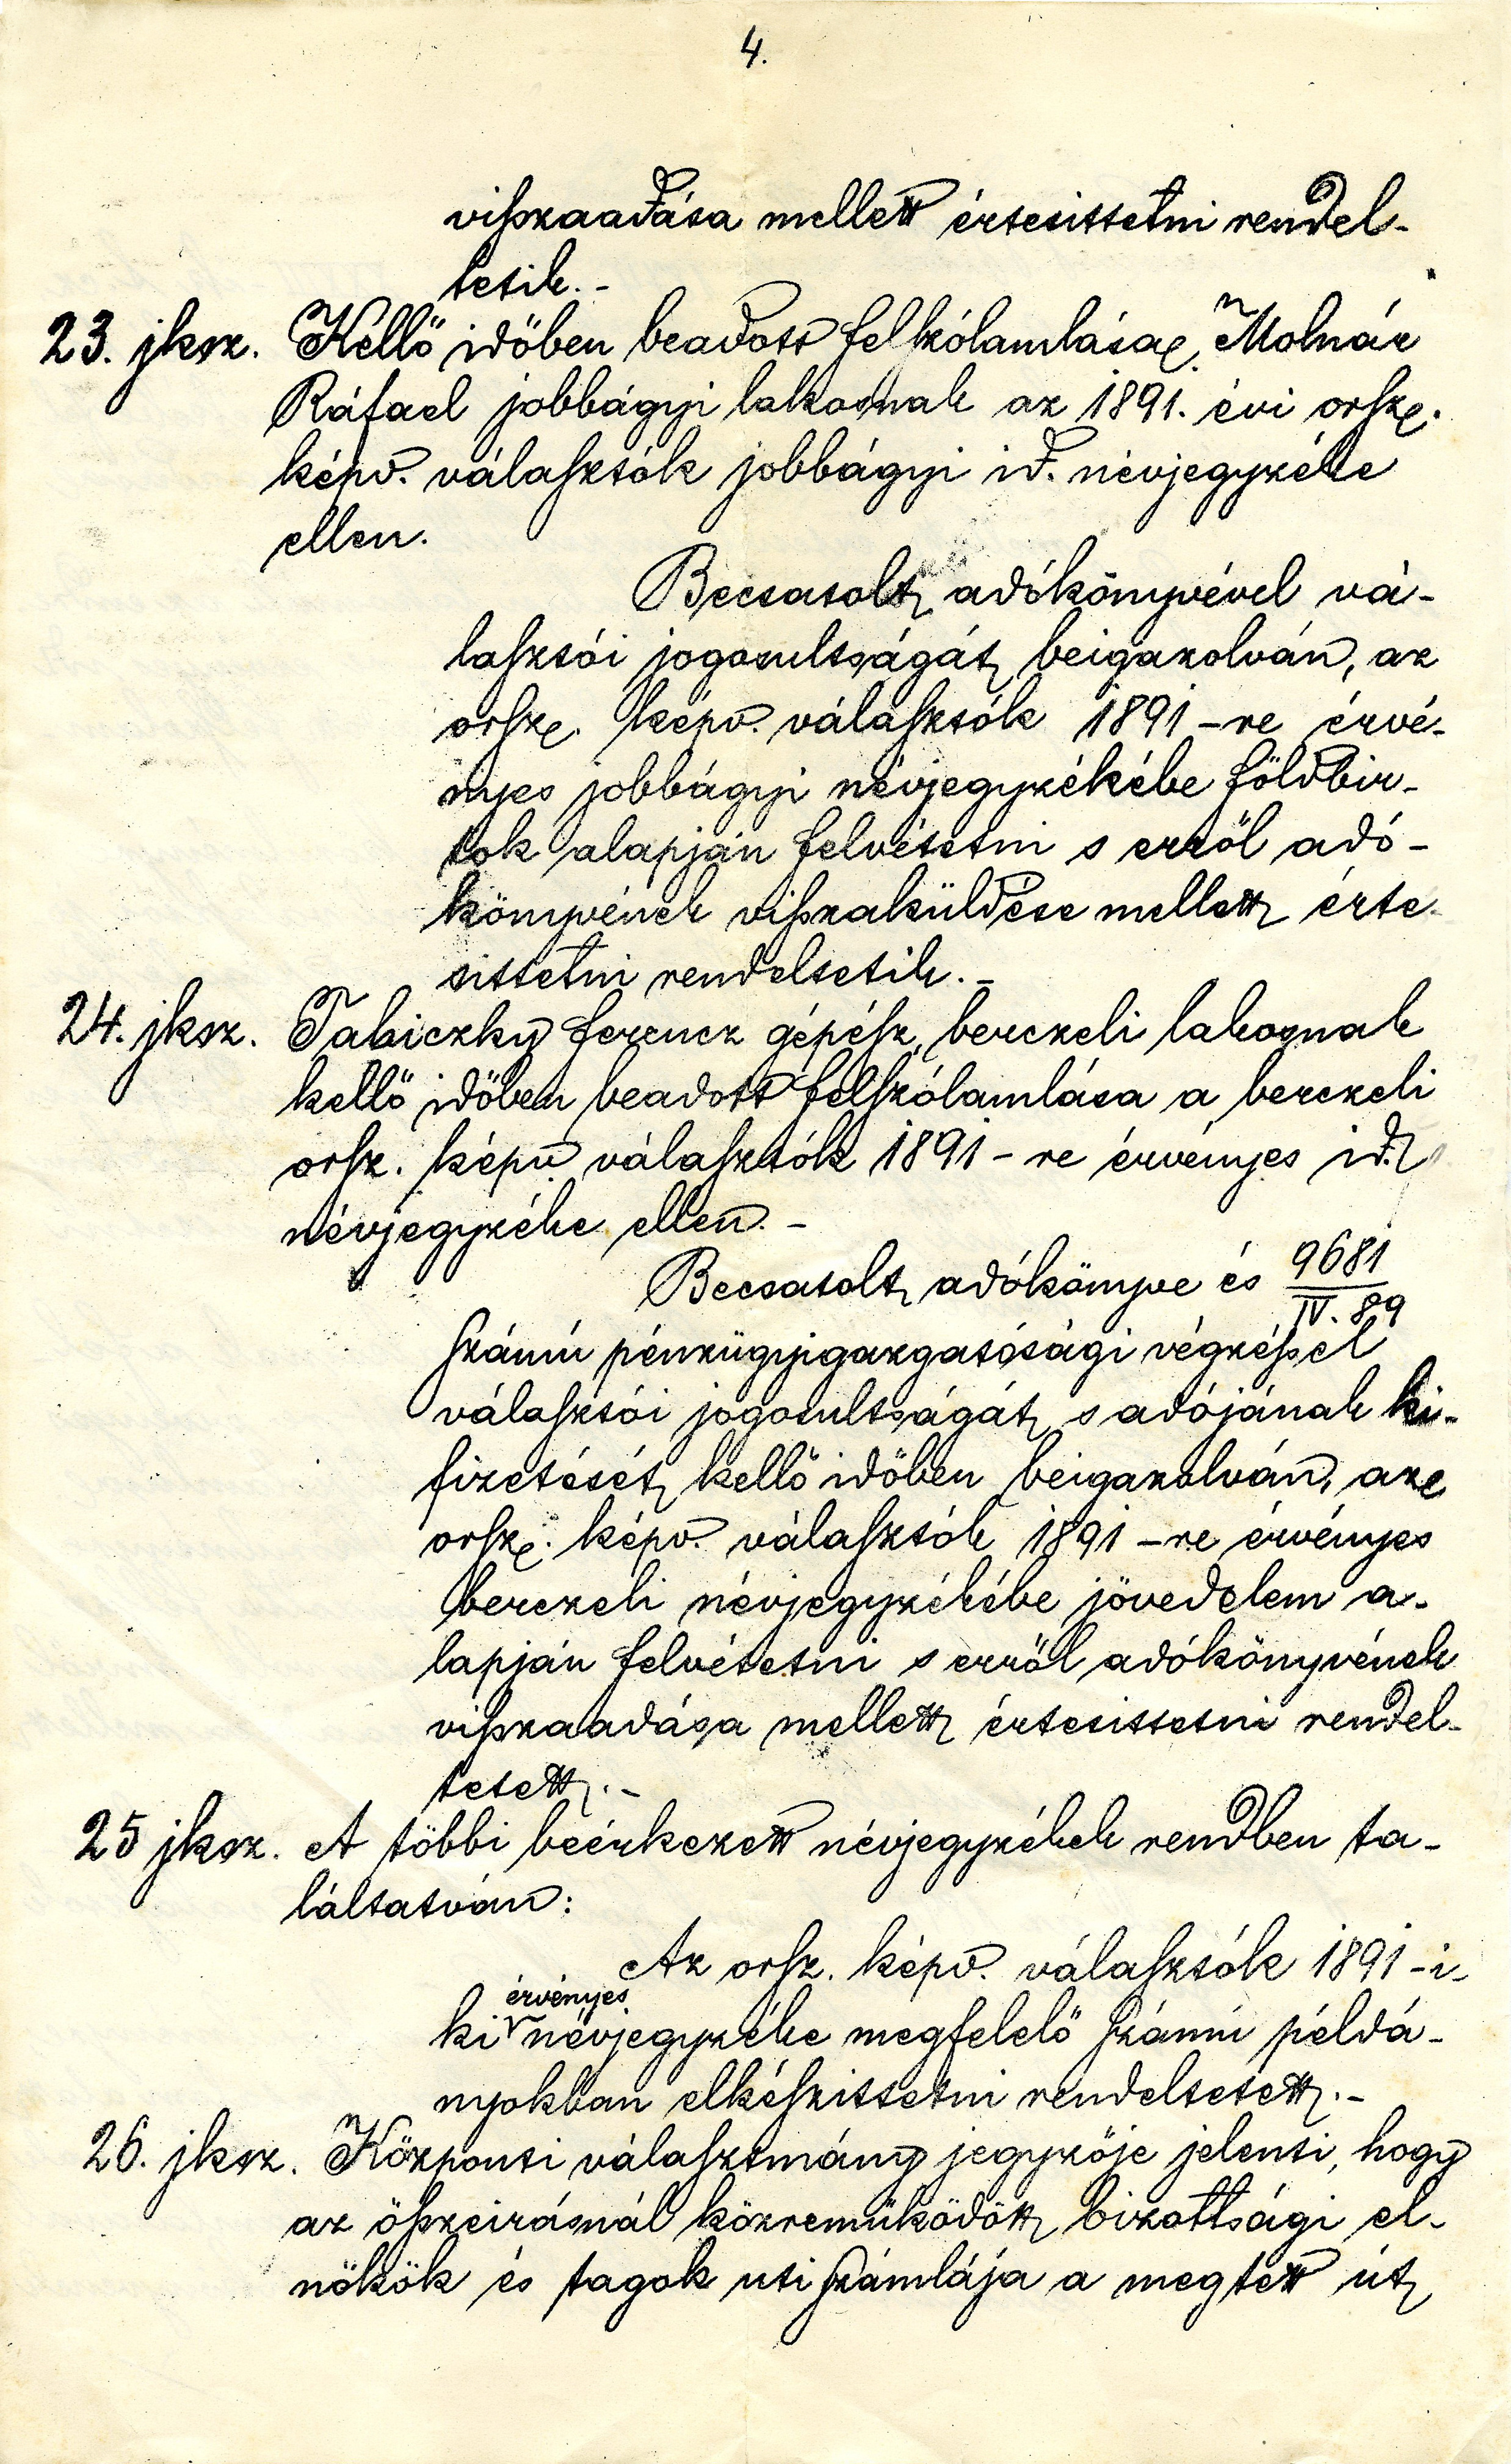 4.
visszaadása mellett értesittetni rendel-
tetik.-
23. jksz. Kellő időben beadott felszólamlása Molnár
Ráfael jobbágyi lakosnak az 1891. évi orsz.
képv. választók jobbágyi id. névjegyzéke
ellen.
Becsatolt adókönyvével vá-
lasztói jogosultságát beigazolván, az
orsz. képv. választók 1891-re érvé-
nyes jobbágyi névjegyzékébe földbir-
tok alapján felvétetni s erről adó-
könyvének visszaküldése mellett érte-
sittetni rendeltetik.-
24. jksz. Tabiczky Ferencz gépész, berczeli lakosnak
kellő időben beadott felszólamlása a berczeli
orsz. képv. választók 1891-re érvényes id.
névjegyzéke ellen.-
Becsatolt adókönyve és 9681/IV. 89
számú pénzügyigazgatósági végzéssel
választói jogosultságát s adójának ki-
fizetését kellő időben beigazolván, az
orsz. képv. választók 1891-re érvényes
berczeli névjegyzékébe jövedelem a-
lapján felvétetni s erről adókönyvének
visszaadása mellett értesittetni rendel-
tetett.-
25 jksz. A többi beérkezett névjegyzékek rendben ta-
láltatván:
Az orsz. képv. választók 1891-i-
ki érvényes névjegyzéke megfelelő számú példá-
nyokban elkészittetni rendeltetett.-
26. jksz. Központi választmány jegyzője jelenti, hogy
az összeirásnál közreműködött bizottsági el-
nökök és tagok uti számlája a megtett út